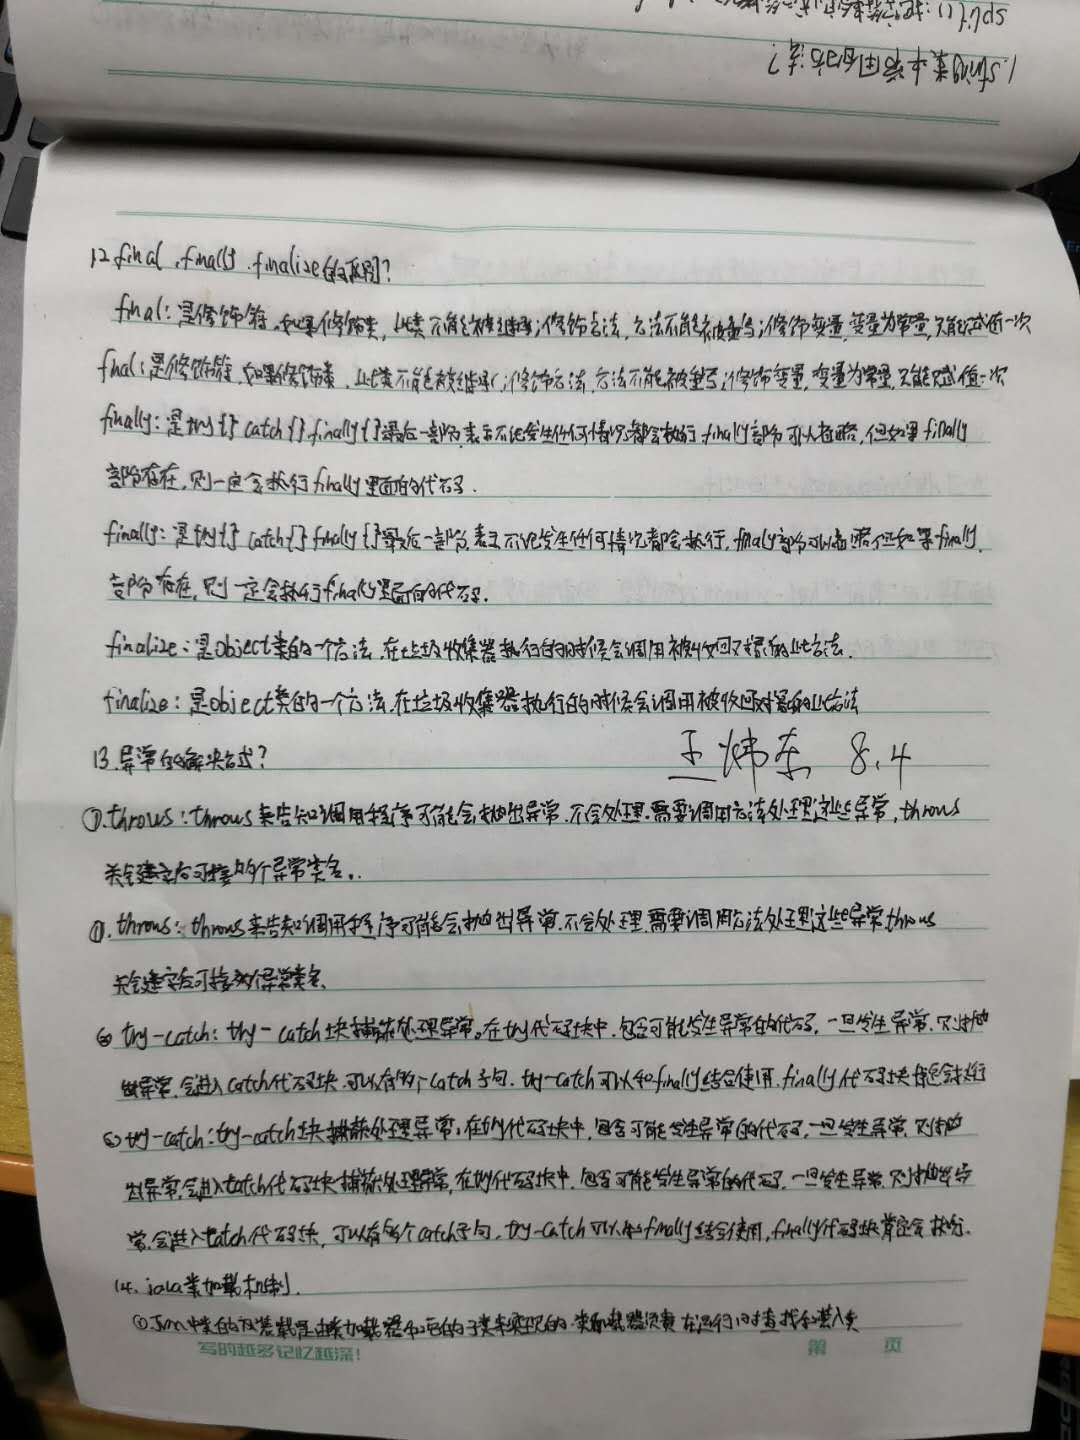 1.String类中常用的方法?
split():把字符串
12.final,finally,finalize的区别?
final:是修饰符,如果修饰类,此类不能被继承;修饰方法,方法不能被重写;修饰变量,变量为常量,只能赋值一次
final:是修饰符,如果修饰类,此类不能被继承;修饰方法,方法不能被重写;修饰变量,变量为常量,只能赋值一次
finally:是try{}catch{}finally{}最后一部分,表示不论发生任何情况都会执行,finally部分可以省略,但如果finally
部分存在,则一定会执行finally里面的代码.
finally:是try{}catch{}finally{}最后一部分,表示不论发生任何情况都会执行,finaly部分可以省略但如果finally,
部分存在,则一定会执行finally里面的代码.
finalize:是Object类的一个方法,在垃圾收集器执行的时候会调用被收回对象的此方法.
finalize:是object类的一个方法,在垃圾收集器执行的时候会调用被收回对象的此方法
13.异常的解决方式? 王炜东 8.4
①.throws:throws来告知调用程序可能会抛出异常.不会处理.需要调用方法处理这些异常,throws
关键字后可接多个异常类名..
①.throws:throws来告知调用程序可能会抛出异常.不会处理.需要调用方法处理这些异常,throws
关键字后可接多个异常类名.
② try-catch:try-catch块捕获处理异常。在try代码块中,包含可能发生异常的代码,一旦发生异常,则抛
出异常,会进入catch代码块.可以有多个catch子句.try-catch可以和finally结合使用.finally代码块肯定会执行
② try-catch:try-catch块捕获处理异常,在try代码块中,包含可能发生异常的代码,一旦发生异常,则抛
出异常,会进入catch代码块捕获处理异常,在try代码块中,包含可能发生异常的代码,一旦发生异常,则抛出异
常,会进入catch代码块,可以有多个catch子句,try-catch可以和finally结合使用,finally代码块肯定会执行.
14.java类加载机制.
①Jvm中类的装载是由类加载器和它的子类来实现的.类加载器负责在运行时查找和装入类
写的越多记忆越深!
第 页